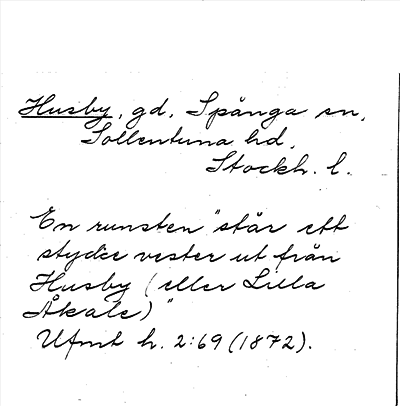 Husby, gd, Spånga sn,
Sollentuna hd,
Stockh. l.
En runsten "står ett
stycke vester ut från
Husby (eller Lilla
Åkale)"
Ufmt h. 2:69 (1872).